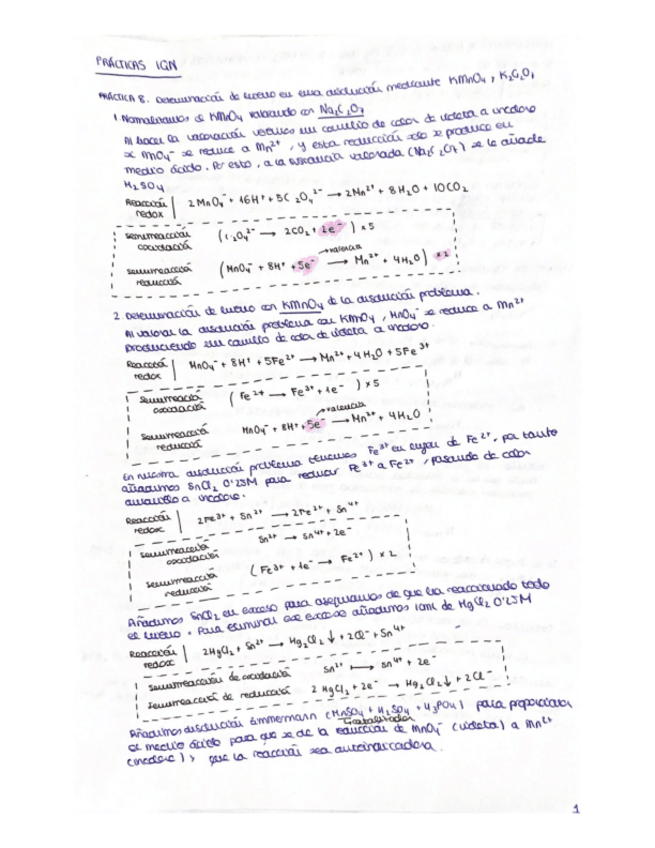 PRÁCTICAS IGN
PRÁCTICA 8. Determinación de hierro en una disolución mediante KMnO4 y K2Cr2O7
1. Normalizamos de KMnO4 valorando con Na2C2O4
Al hacer la valoración vemos un cambio de color de violeta a incoloro
MnO4⁻ se reduce a Mn²⁺, y esta reducción solo se produce en
medio ácido. Por esto, a la sustancia valorada se le añade
H2SO4
Reacción redox | 2MnO4⁻ + 16H⁺ + 5C2O4²⁻ → 2Mn²⁺ + 8H2O + 10CO2
semirreacción oxidación (C2O4²⁻ → 2CO2 + 2e⁻) x5
→ valencia
semirreacción reducción (MnO4⁻ + 8H⁺ + 5e⁻ → Mn²⁺ + 4H2O) x2
2. Determinación de hierro con KMnO4 de la disolución problema.
Al valorar la disolución problema con KMnO4, MnO4⁻ se reduce a Mn²⁺
produciendo un cambio de color de violeta a incoloro.
Reacción redox | MnO4⁻ + 8H⁺ + 5Fe²⁺ → Mn²⁺ + 4H2O + 5Fe³⁺
semirreacción oxidación (Fe²⁺ → Fe³⁺ + 1e⁻) x5
→ valencia
semirreacción reducción MnO4⁻ + 8H⁺ + 5e⁻ → Mn²⁺ + 4H2O
En nuestra disolución problema tenemos Fe³⁺ en lugar de Fe²⁺, por tanto
añadimos SnCl2 0'25M para reducir Fe³⁺ a Fe²⁺, pasando de color
amarillo a incoloro.
Reacción redox | 2Fe³⁺ + Sn²⁺ → 2Fe²⁺ + Sn⁴⁺
semirreacción oxidación Sn²⁺ → Sn⁴⁺ + 2e⁻
semirreacción reducción (Fe³⁺ + 1e⁻ → Fe²⁺) x2
Añadimos SnCl2 en exceso para asegurarnos de que ha reaccionado todo
el hierro. Para eliminar ese exceso añadimos 10mL de HgCl2 0'25M
Reacción redox | 2HgCl2 + Sn²⁺ → Hg2Cl2↓ + 2Cl⁻ + Sn⁴⁺
semirreacción de oxidación Sn²⁺ → Sn⁴⁺ + 2e⁻
semirreacción de reducción 2HgCl2 + 2e⁻ → Hg2Cl2↓ + 2Cl⁻
Añadimos disolución Zimmermann (MnSO4 + H2SO4 + H3PO4) para proporcionar
catalizador
el medio ácido para que se dé la reacción de MnO4⁻ (violeta) a Mn²⁺
(incoloro) y que la reacción sea autoindicadora.
1